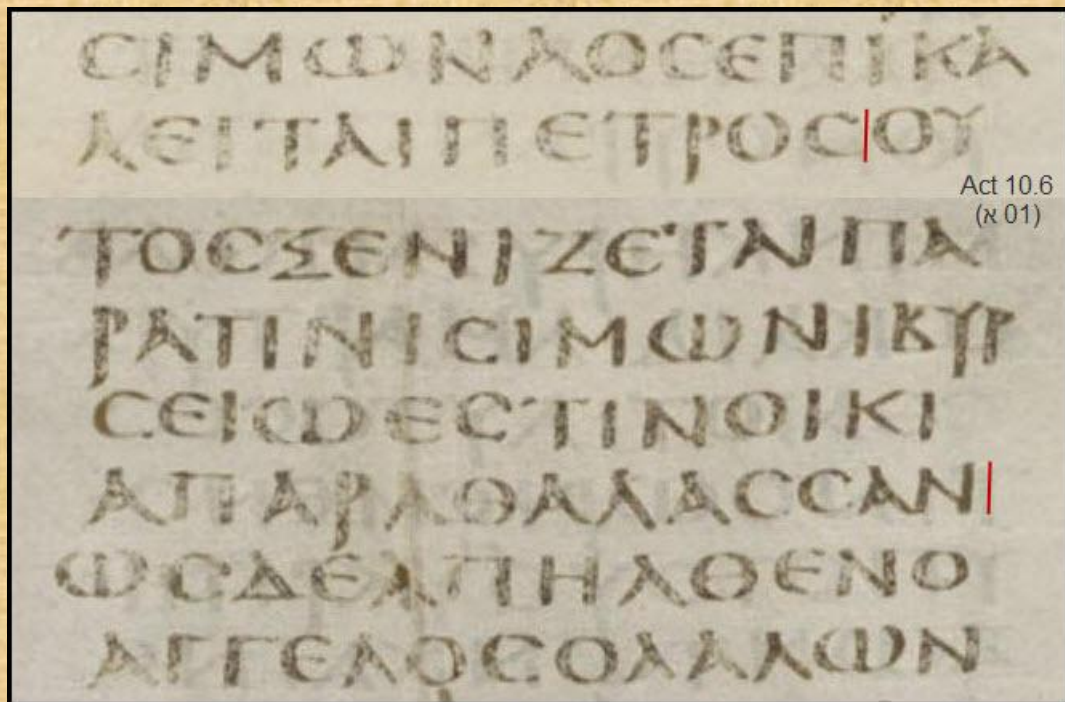 ϹΙΜΩΝΑΟϹΕΠΙΚΑ
ΛΕΙΤΑΙΠΕΤΡΟϹ|ΟΥ
Act 10.6
(א 01)
ΤΟϹΞΕΝΙΖΕΤΑΙΠΑ
ΡΑΤΙΝΙϹΙΜΩΝΙΒΥΡ
ϹΕΙΩΕϹΤΙΝΟΙΚΙ
ΑΠΑΡΑΘΑΛΑϹϹΑΝ|
ΩϹΔΕΑΠΗΛΘΕΝΟ
ΑΓΓΕΛΟϹΟΛΑΛΩΝ